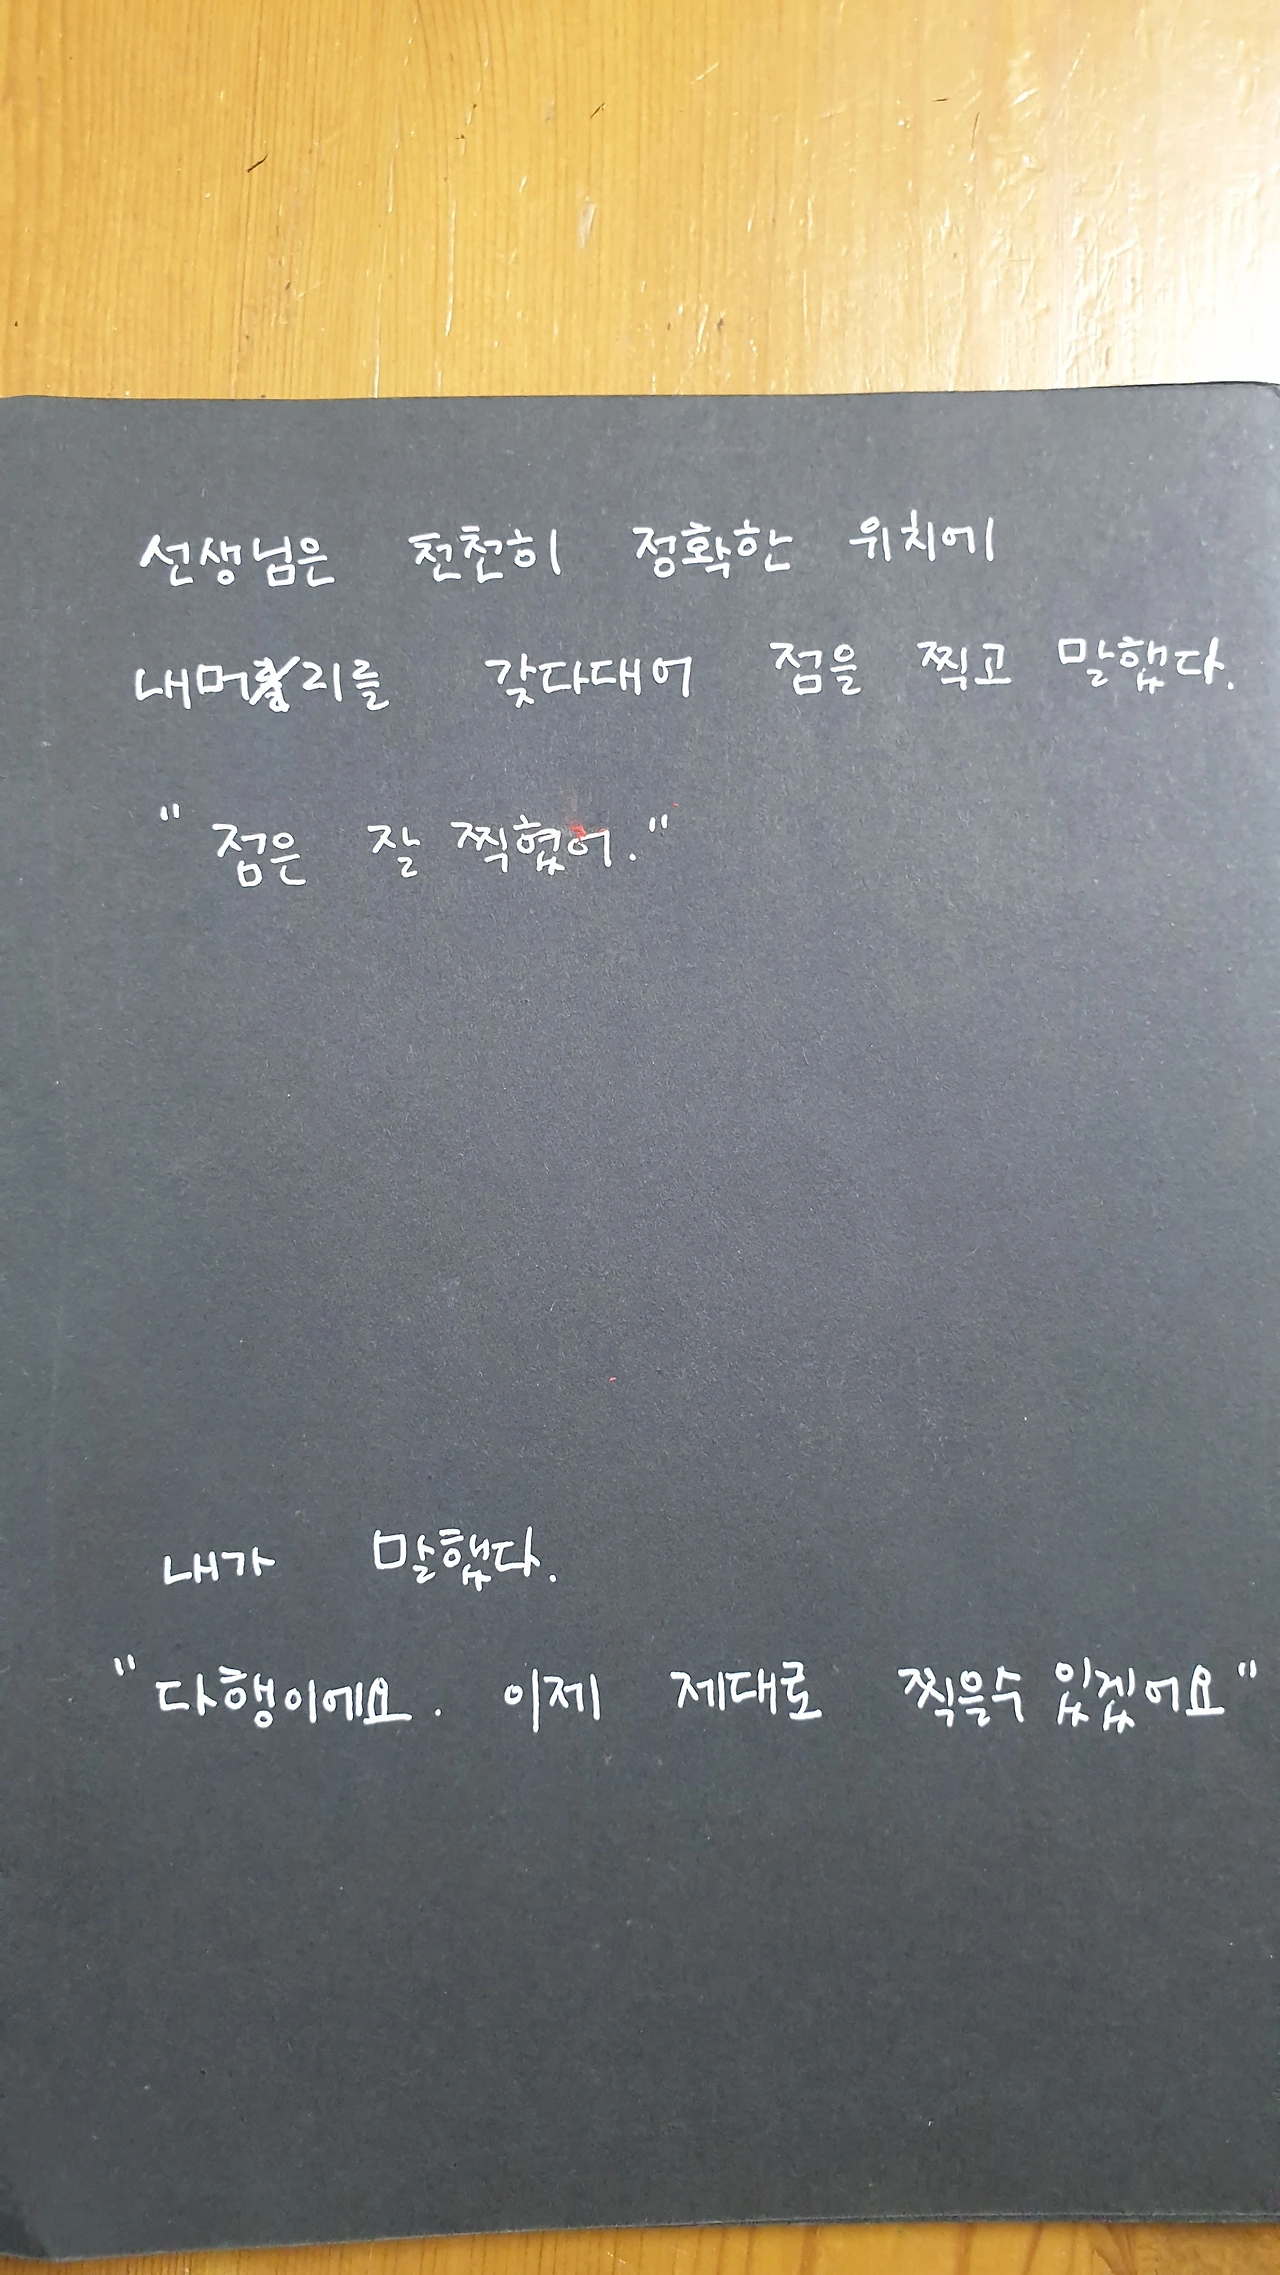 선생님은 천천히 정확한 위치에
내머리를 갖다대어 점을 찍고 말했다.
"점은 잘 찍혔어."
내가 말했다.
"다행이에요. 이제 제대로 찍을수 있겠어요"